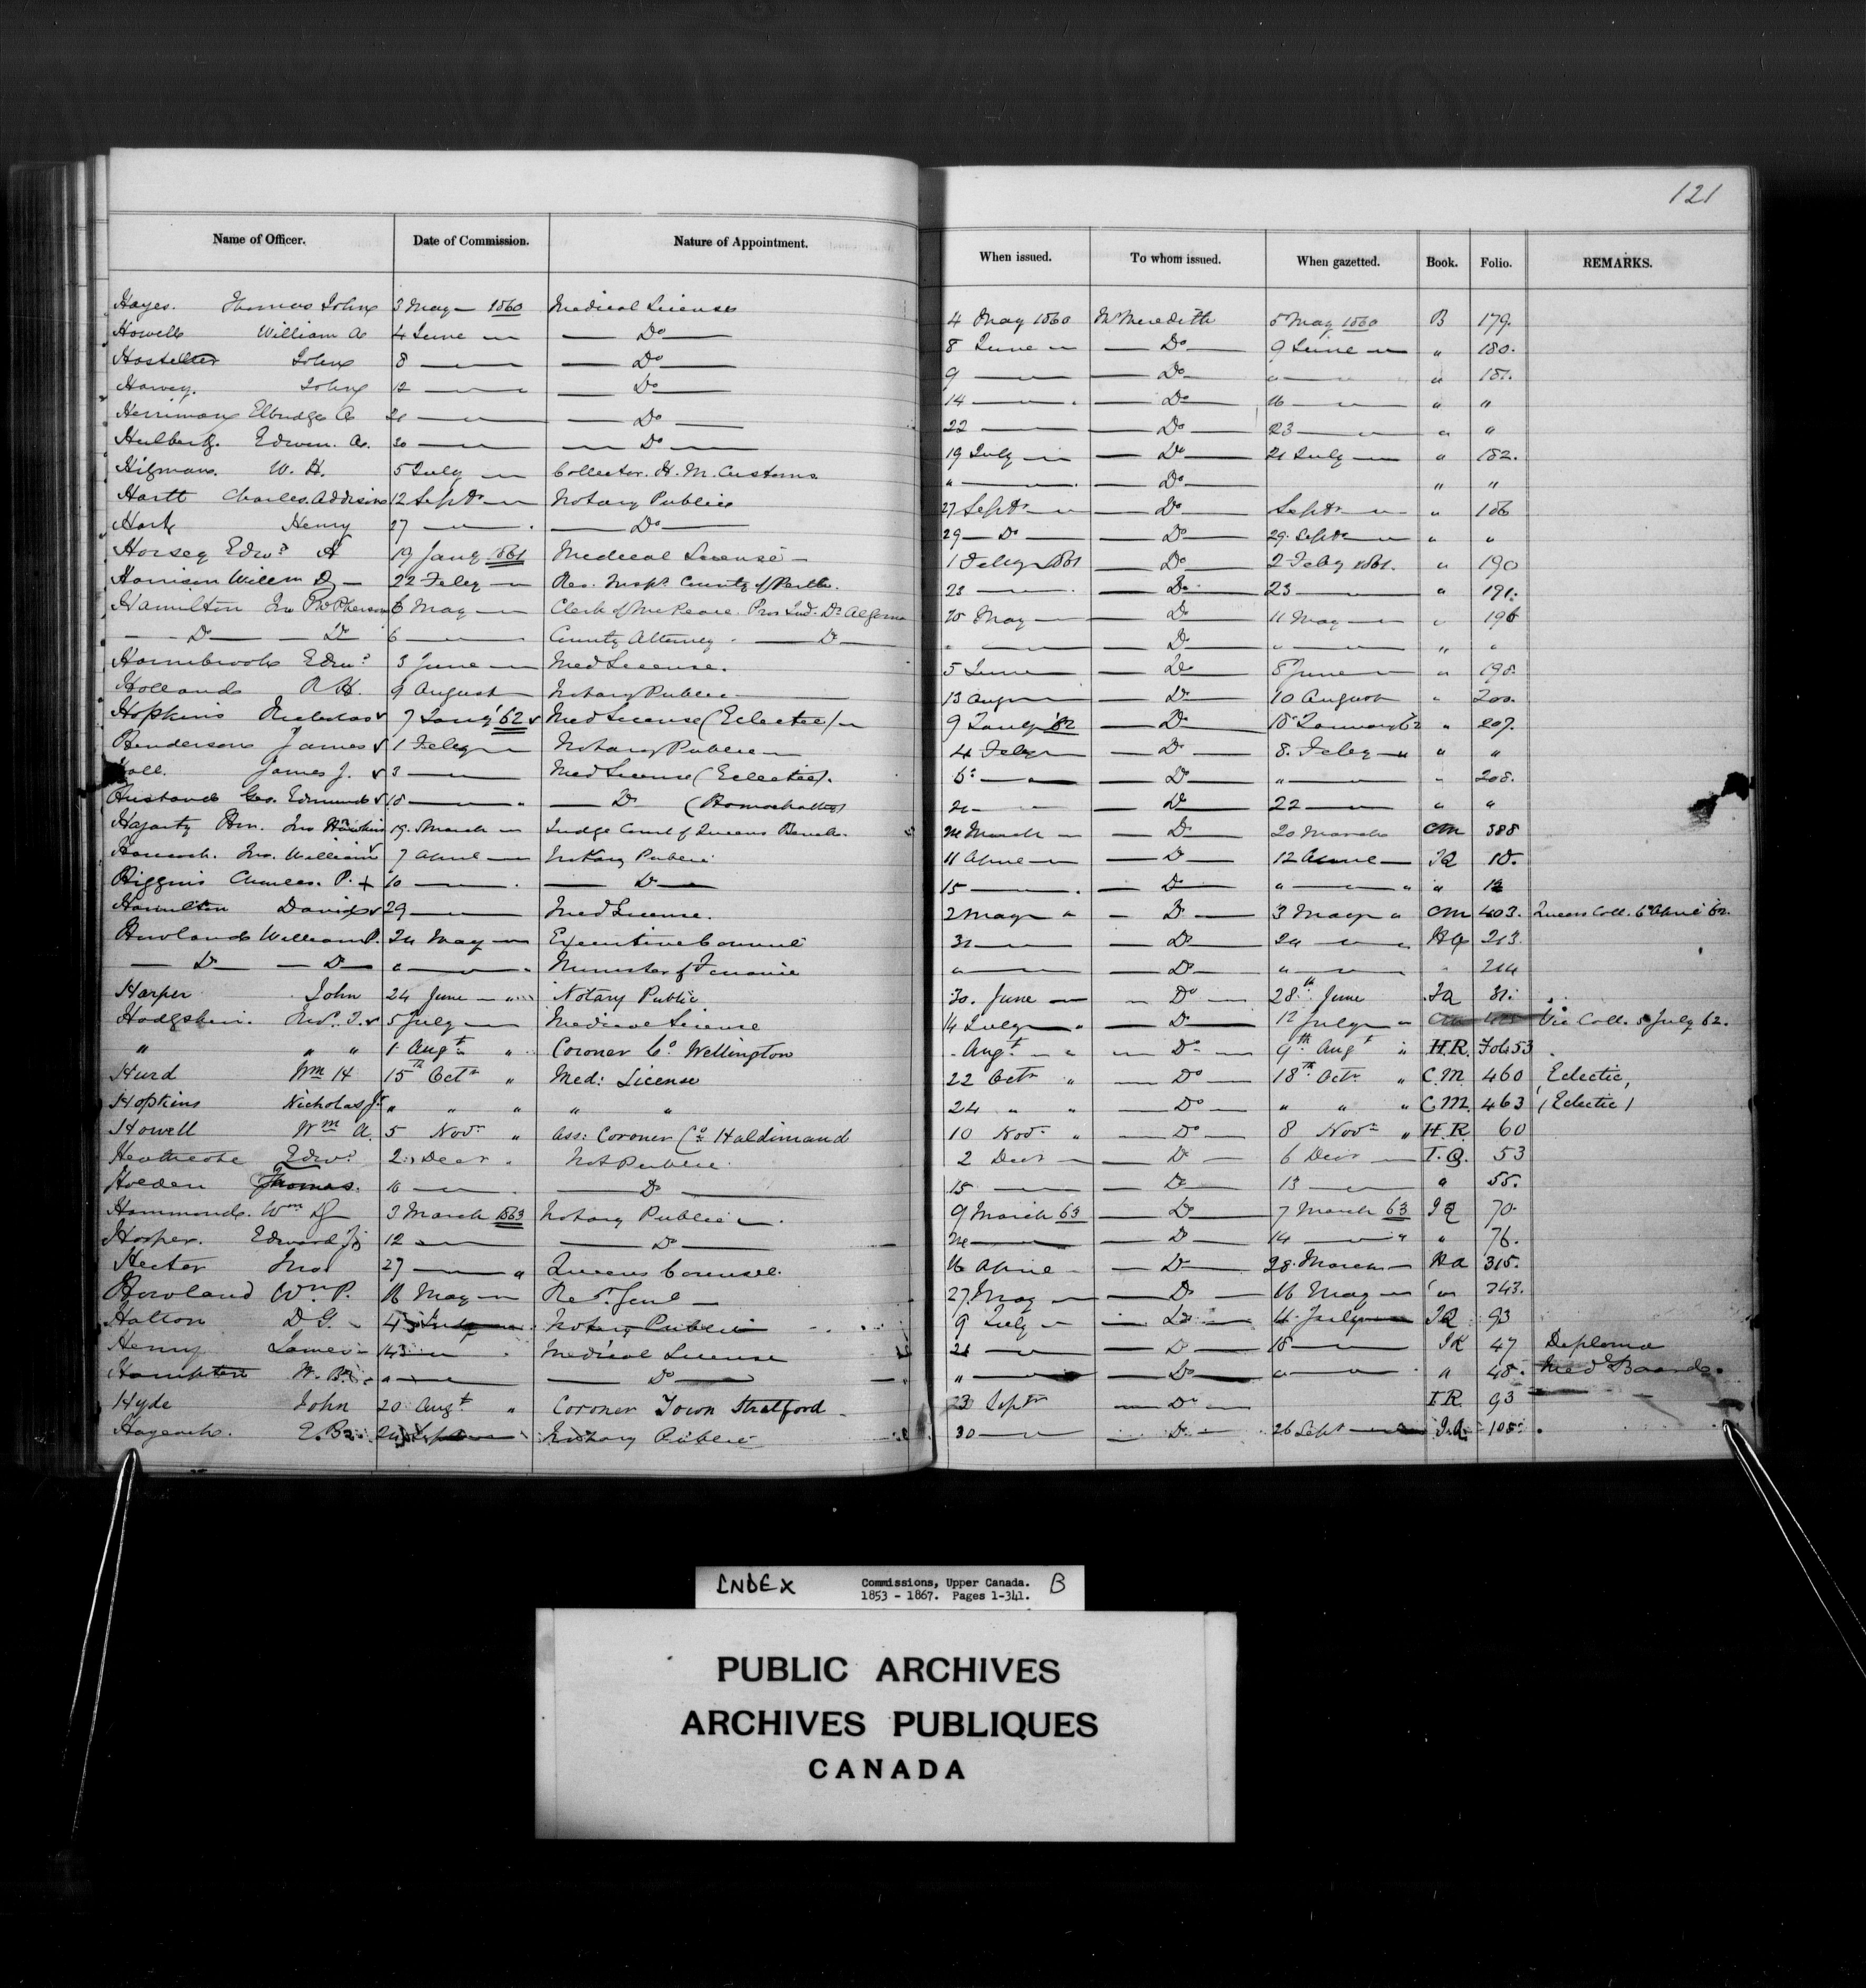 121
Name of Officer. Date of Commission. Nature of Appointment. When issued. To whom issued. When gazetted. Book. Folio. REMARKS.
Hayes. Thomas John 3 May 1860 Medical License 4 May 1860 Mr Meredith 5 May 1860 B 179.
Howell William A 4 June " — Do — 8 June " — Do — 9 June " " 180.
Hostetter John 8 — " — Do — 9 — " — Do — " — " " 181.
Harvey. John 12 — " — Do — 14 — " — Do — 16 — " " "
Herriman Elbridge A — " — Do — 22 — " — Do — 23 — " " "
Edwin. A. 30 — " — Do — 19 July " — Do — 21 July " " 182.
W. H. 5 July " Collector. H. M. Customs " — " — Do — " "
Hartt Charles Addison 12 Septr " Notary Public 27 Septr " — Do — Septr " " 186
Hart Henry 27 — " — Do — 29 — Do — Do — 29 Septr " " "
Horsey Edwd H 19 Jany 1861 Medical License 1 Feby 1861 — Do — 2 Feby 1861. " 190
Harrison Willm D 22 Feby " Rev. Inspr County of Perth. 23 — " — Do — 23 — " 191.
Hamilton Jno McPherson 6 May " Clerk of the Peace. Prov Jud. Dt Algoma May — Do — 11 May " " 196
— Do — Do 6 — " County Attorney. — Do — " — " — Do — " — " " "
Hornibrook Edwd 3 June " Med License. 5 June — Do — 8 June " " 198.
Holland R H. 9 August Notary Public 13 Augt — Do — 10 August " 200.
Hopkins Nicholas 7 Jany '62 Med License (Eclectic) 9 Jany '62 — Do — January 62 " 207.
Henderson James 1 Feby " Notary Public 4 Feby " — Do — 8. Feby " " "
Hall. James J. 3 — " Med License (Eclectic). 6 — " — Do — " — " " 208.
Husband Geo. Edmund 18 — " — Do (Homoepathic) — Do — 22 — " " "
Hagarty Hon. Jno Hawkins 19. March " Judge Court of Queens Bench. March " — Do — 20 March CM 388
Hancock. Jno. William 7 April " Notary Public 11 April " — Do — 12 April — IQ 10.
Higgins Charles. P. + 10 — " — Do — 15 — " — Do — " — " " 12
Hamilton David 29 — " Med License. 2 May " — Do — 3 May " CM 403. Queens Coll. 6 April 62.
Howland William P. 24 May " Executive Council 31 — " — Do — 24 — " HQ 213.
— Do — Do — " — " Minister of Finance " — " — Do — " — " " 214
Harper John 24 June " Notary Public 30. June — Do — 28th June IQ 31.
5 July " Medical License 14 July " — Do — 12 July " CM Vic Coll. 5 July 62.
" " " 1 Augt " Coroner Co. Wellington Augt " — Do — 9th Augt " H.R. Fol. 53
Hurd Wm H 15th Octr " Med: License 22 Octr " — Do — 18th Octr " C.M. 460 (Eclectic)
Hopkins Nicholas Jr " " " " " 24 " " — Do — " " " C.M. 463 (Eclectic)
Howell Wm A. 5 Novr " Ass: Coroner Co. Haldimand 10 Novr " — Do — 8 Novr " H.R. 60
Heathcote Edwd 2 Decr " Not Public 2 Decr " — Do — 6 Decr " I.Q. 53
Holden Thomas. — " — Do — 15 — " — Do — 13 — " " 55.
Hammond. Wm 3 March 1863 Notary Public 9 March 63 — Do — 7 March 63 IQ 70.
Hooper. Edward 12 — " — Do — — " — Do — 14 — " " 76.
Hector Jno 27 — " Queens Counsel. 16 April — Do — 28 March HQ 315.
Howland Wm P. 16 May " Recr. Genl — 27. May " — Do — 16 May " " 343.
Hatton D G. July Notary Public 9 July " — Do — July IQ 93
Henry James — " Medical License 21 — " — Do — 18 — " IR 47 Diploma
W. B. " — " — Do — " — " — Do — " — " " 48. Med Board.
Hyde John 20 Augt " Coroner Town Stratford 23 Septr — Do — I.R. 93
E. B. 24 Septr Notary Public 30 — " — Do — 26 Sept " I.Q. 105.
INDEX Commissions, Upper Canada. B
1853 - 1867. Pages 1-341.
PUBLIC ARCHIVES
ARCHIVES PUBLIQUES
CANADA